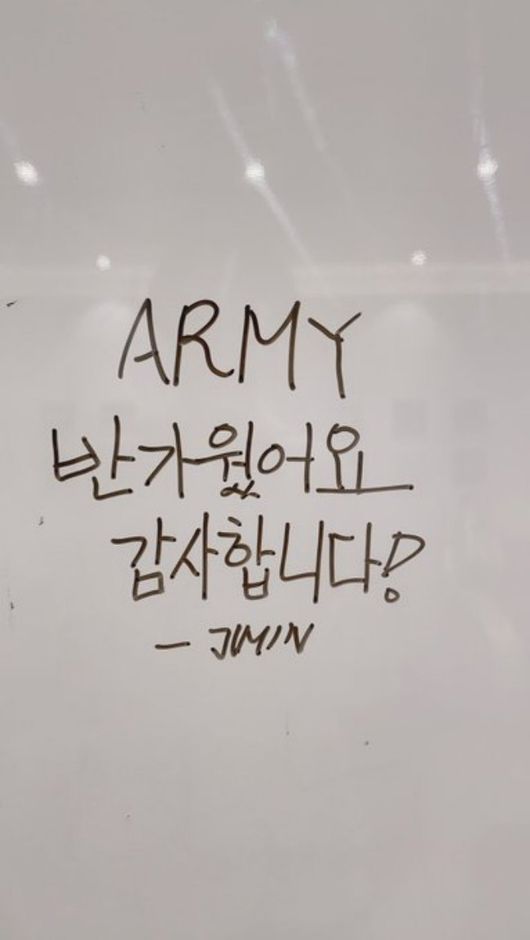 ARMY
반가웠어요
감사합니다!
- JIMIN